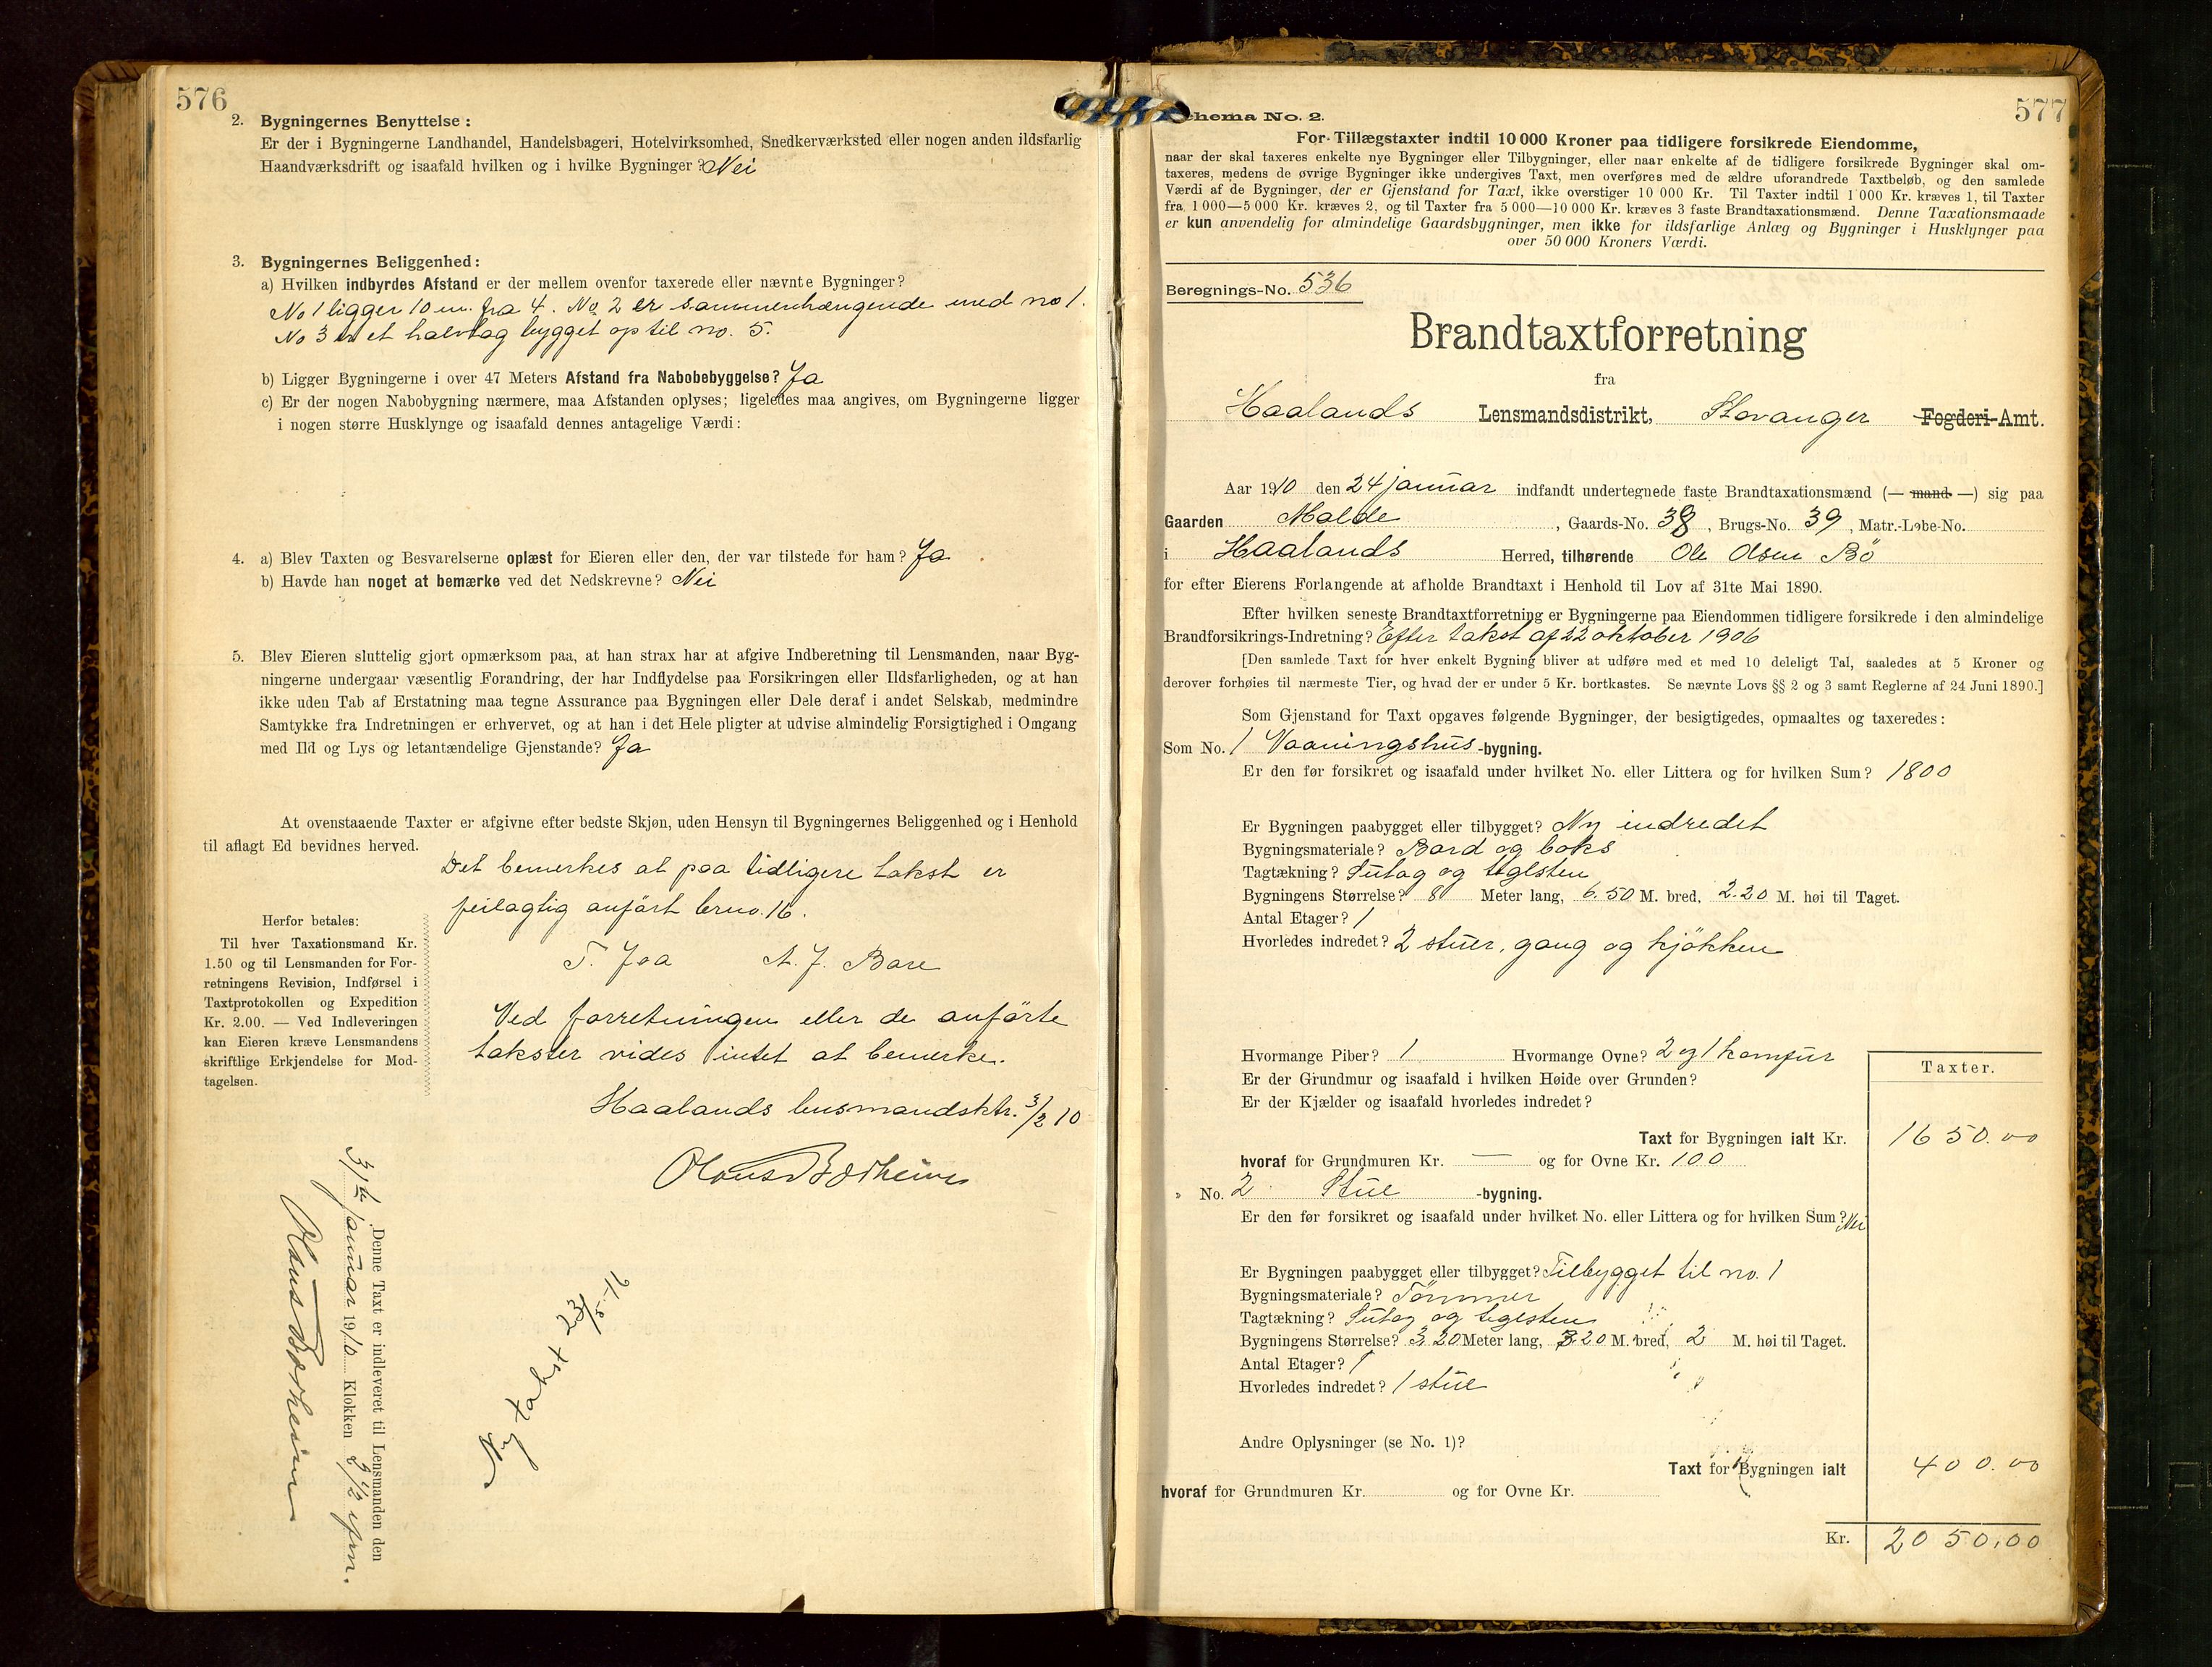 576
2. Bygningernes Benyttelse:
Er der i Bygningerne Landhandel, Handelsbageri, Hotelvirksomhed, Snedkerværksted eller nogen anden ildsfarlig
Haandværksdrift og isaafald hvilken og i hvilke Bygninger? Nei
3. Bygningernes Beliggenhed:
a) Hvilken indbyrdes Afstand er der mellem ovenfor taxerede eller nævnte Bygninger?
No 1 ligger 10 m. fra 4. No 2 er sammenhængende med no 1.
No 3 er et halvtag bygget op til no. 5.
b) Ligger Bygningerne i over 47 Meters Afstand fra Nabobebyggelse? Ja
c) Er der nogen Nabobygning nærmere, maa Afstanden oplyses; ligeledes maa angives, om Bygningerne ligger
i nogen større Husklynge og isaafald dennes antagelige Værdi:
4. a) Blev Taxten og Besvarelserne oplæst for Eieren eller den, der var tilstede for ham? Ja
b) Havde han noget at bemærke ved det Nedskrevne? Nei
5. Blev Eieren sluttelig gjort opmærksom paa, at han strax har at afgive Indberetning til Lensmanden, naar Byg-
ningerne undergaar væsentlig Forandring, der har Indflydelse paa Forsikringen eller Ildsfarligheden, og at han
ikke uden Tab af Erstatning maa tegne Assurance paa Bygningen eller Dele deraf i andet Selskab, medmindre
Samtykke fra Indretningen er erhvervet, og at han i det Hele pligter at udvise almindelig Forsigtighed i Omgang
med Ild og Lys og letantændelige Gjenstande? Ja
At ovenstaaende Taxter er afgivne efter bedste Skjøn, uden Hensyn til Bygningernes Beliggenhed og i Henhold
til aflagt Ed bevidnes herved.
Det bemerkes at paa tidligere takst er
feilagtig anført brno. 16.
T. Joa A. J. Bore
Ved forretningen eller de anførte
takster vides intet at bemerke.
Haalands lensmandsktr. 3/2 10
Olaus Borsheim
Herfor betales:
Til hver Taxationsmand Kr.
1.50 og til Lensmanden for For-
retningens Revision, Indførsel i
Taxtprotokollen og Expedition
Kr. 2.00. — Ved Indleveringen
kan Eieren kræve Lensmandens
skriftlige Erkjendelse for Mod-
tagelsen.
Denne Taxt er indleveret til Lensmanden den
31te januar 19/10 Klokken 3 1/2 efm.
Olaus Borsheim
Ny takst 23/5-16
577
Schema No. 2.
For Tillægstaxter indtil 10 000 Kroner paa tidligere forsikrede Eiendomme,
naar der skal taxeres enkelte nye Bygninger eller Tilbygninger, eller naar enkelte af de tidligere forsikrede Bygninger skal om-
taxeres, medens de øvrige Bygninger ikke undergives Taxt, men overføres med de ældre uforandrede Taxtbeløb, og den samlede
Værdi af de Bygninger, der er Gjenstand for Taxt, ikke overstiger 10 000 Kr. Til Taxter indtil 1 000 Kr. kræves 1, til Taxter
fra 1 000—5 000 Kr. kræves 2, og til Taxter fra 5 000—10 000 Kr. kræves 3 faste Brandtaxationsmænd. Denne Taxationsmaade
er kun anvendelig for almindelige Gaardsbygninger, men ikke for ildsfarlige Anlæg og Bygninger i Husklynger paa
over 50 000 Kroners Værdi.
Beregnings-No. 536
Brandtaxtforretning
fra
Haalands Lensmandsdistrikt, Stavanger Fogderi-Amt.
Aar 1910 den 24 januar indfandt undertegnede faste Brandtaxationsmænd (— mand —) sig paa
Gaarden Malde, Gaards-No. 38, Brugs-No. 39, Matr.-Løbe-No.
i Haalands Herred, tilhørende Ole Olsen Bö
for efter Eierens Forlangende at afholde Brandtaxt i Henhold til Lov af 31te Mai 1890.
Efter hvilken seneste Brandtaxtforretning er Bygningerne paa Eiendommen tidligere forsikrede i den almindelige
Brandforsikrings-Indretning? Efter takst af 22 oktober 1906
[Den samlede Taxt for hver enkelt Bygning bliver at udføre med et med 10 deleligt Tal, saaledes at 5 Kroner og
derover forhøies til nærmeste Tier, og hvad der er under 5 Kr. bortkastes. Se nævnte Lovs §§ 2 og 3 samt Reglerne af 24 Juni 1890.]
Som Gjenstand for Taxt opgaves følgende Bygninger, der besigtigedes, opmaaltes og taxeredes:
Som No. 1 Vaaningshus-bygning.
Er den før forsikret og isaafald under hvilket No. eller Littera og for hvilken Sum? 1800
Er Bygningen paabygget eller tilbygget? Ny indredet
Bygningsmateriale? Bord og boks
Tagtækning? Sutag og teglsten
Bygningens Størrelse? 8 Meter lang, 6.50 M. bred, 2.20 M. høi til Taget.
Antal Etager? 1
Hvorledes indredet? 2 stuer, gang og kjökken
Hvormange Piber? 1 Hvormange Ovne? 2 og 1 komfur
Er der Grundmur og isaafald i hvilken Høide over Grunden?
Er der Kjælder og isaafald hvorledes indredet?
Taxter.
Taxt for Bygningen ialt Kr. 1650.00
hvoraf for Grundmuren Kr. — og for Ovne Kr. 100
" No. 2 Stue -bygning.
Er den før forsikret og isaafald under hvilket No. eller Littera og for hvilken Sum? Nei
Er Bygningen paabygget eller tilbygget? Tilbygget til no. 1
Bygningsmateriale? Tömmer
Tagtækning? Sutag og teglsten
Bygningens Størrelse? 3.20 Meter lang, 3.20 M. bred, 2 M. høi til Taget.
Antal Etager? 1
Hvorledes indredet? 1 stue
Andre Oplysninger (se No. 1)?
Taxt for Bygningen ialt 400.00
hvoraf for Grundmuren Kr. og for Ovne Kr.
Kr. 2050.00